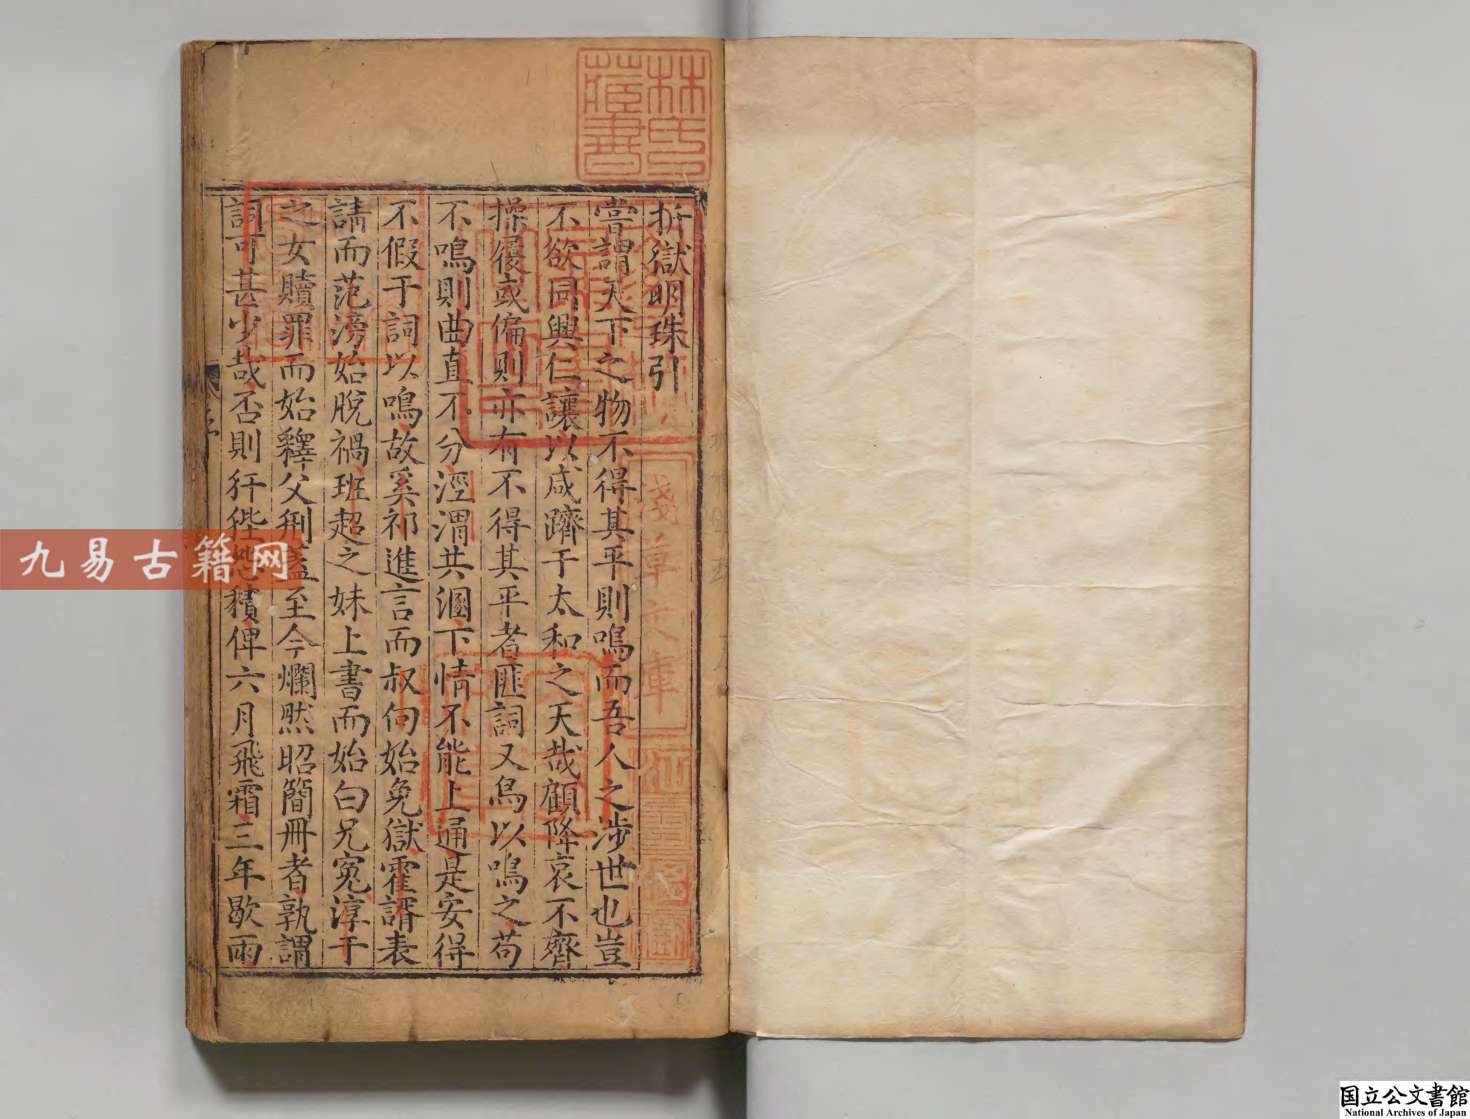 折獄明珠引
嘗謂天下之物不得其平則鳴而吾人之涉世也豈
不欲同興仁讓以咸躋于太和之天哉顧降衷不齊
操履或偏則亦有不得其平者匪詞又烏以鳴之苟
不鳴則曲直不分涇渭共溷下情不能上通是安得
不假于詞以鳴故奚祁進言而叔向始免獄霍諝表
請而范滂始脫禍班超之妹上書而始白兄冤淳于
之女贖罪而始釋父刑蓋至今爛然昭簡冊者孰謂
詞可甚少哉否則犴狴愁獱俾六月飛霜三年歇雨
林氏藏書
淺草文庫
九易古籍网
国立公文書館
National Archives of Japan